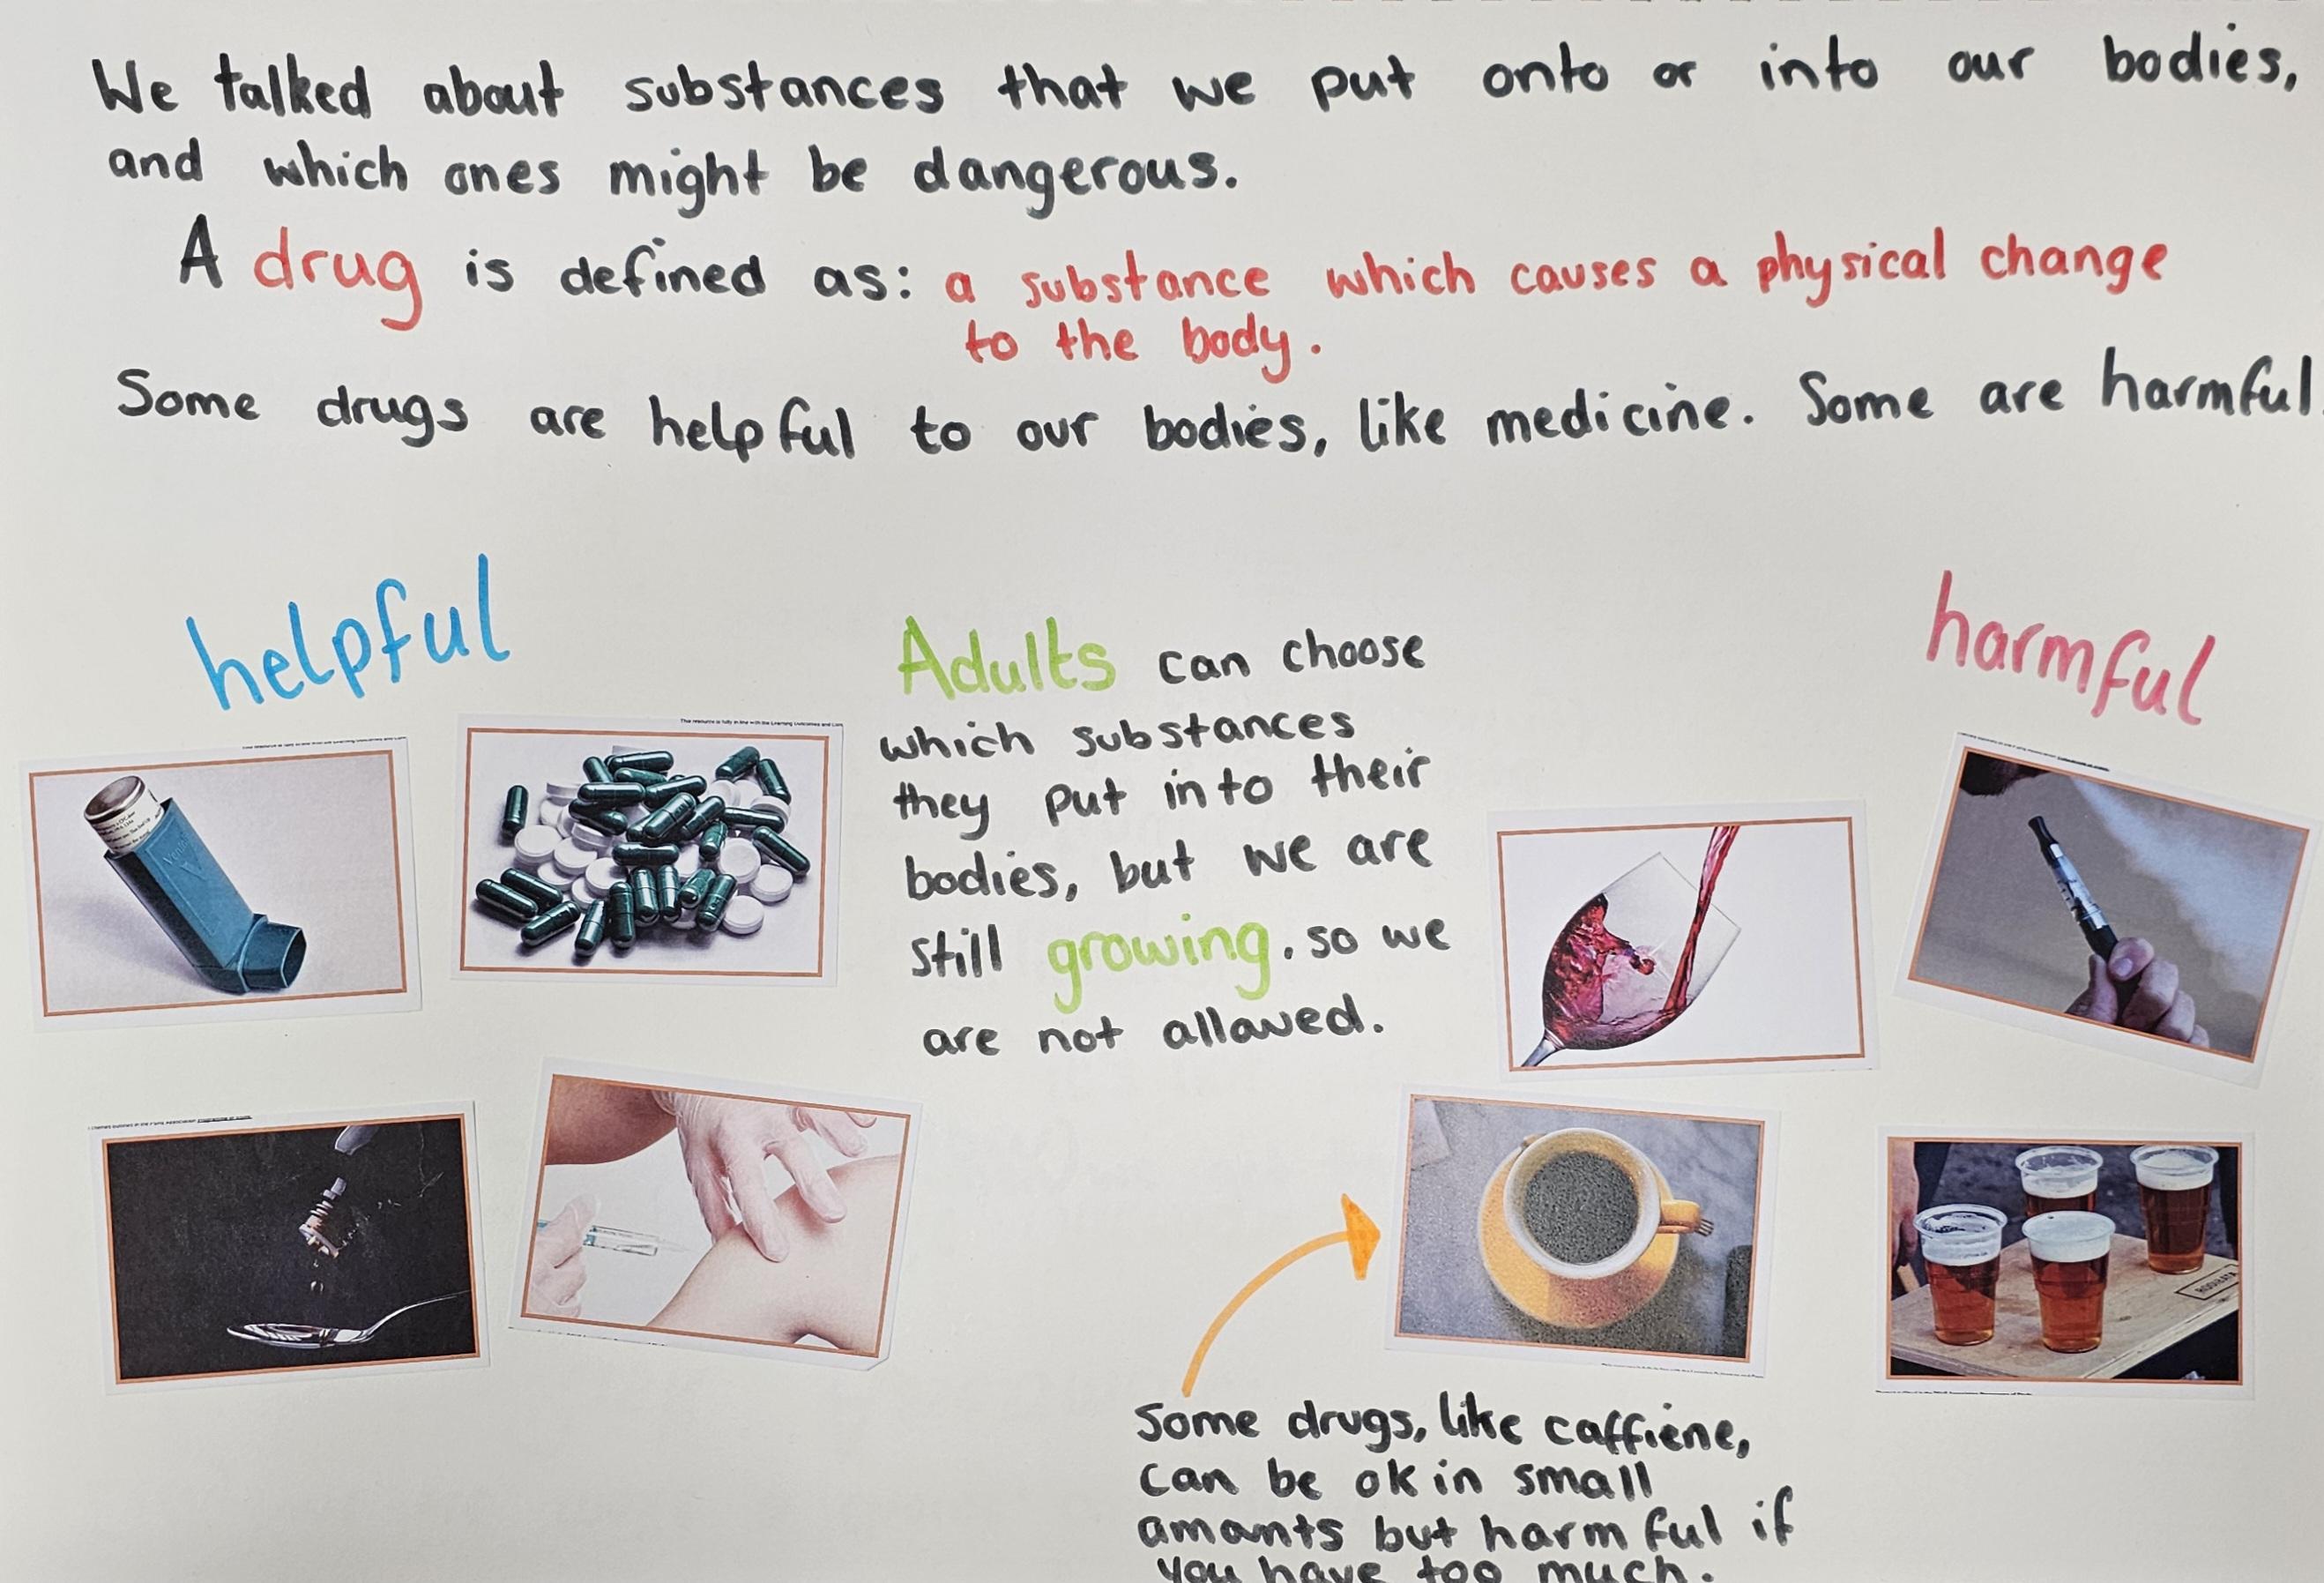 We talked about substances that we put onto or into our bodies,
and which ones might be dangerous.
A drug is defined as: a substance which causes a physical change
to the body.
Some drugs are helpful to our bodies, like medicine. Some are harmful
helpful
harmful
Adults can choose
which substances
they put into their
bodies, but we are
still growing, so we
are not allowed.
Some drugs, like caffiene,
can be ok in small
amants but harmful if
you have too much.